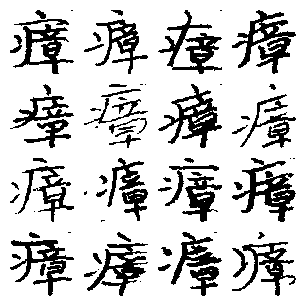 瘴瘴瘴瘴
瘴瘴瘴瘴
瘴瘴瘴瘴
瘴瘴瘴瘴